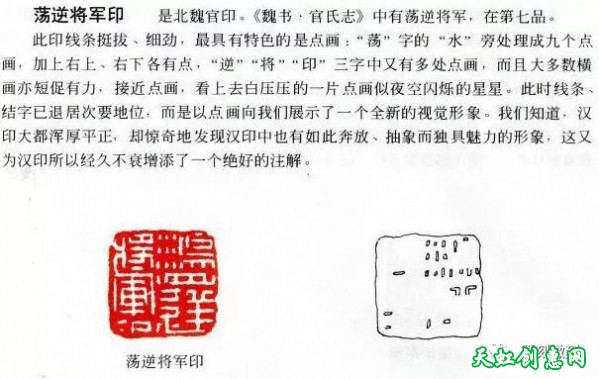 荡逆将军印 是北魏官印。《魏书·官氏志》中有荡逆将军，在第七品。
此印线条挺拔、细劲，最具有特色的是点画：“荡”字的“水”旁处理成九个点
画，加上右上、右下各有点，“逆”“将”“印”三字中又有多处点画，而且大多数横
画亦短促有力，接近点画，看上去白压压的一片点画似夜空闪烁的星星。此时线条、
结字已退居次要地位，而是以点画向我们展示了一个全新的视觉形象。我们知道，汉
印大都浑厚平正，却惊奇地发现汉印中也有如此奔放、抽象而独具魅力的形象，这又
为汉印所以经久不衰增添了一个绝好的注解。
荡逆将军印
天虹创意网